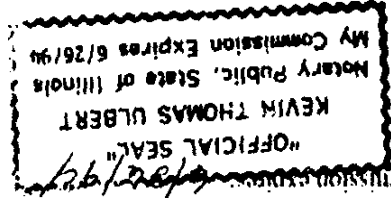 "OFFICIAL SEAL"
KEVIN THOMAS ULBERT
Notary Public, State of Illinois
My Commission Expires 6/26/94